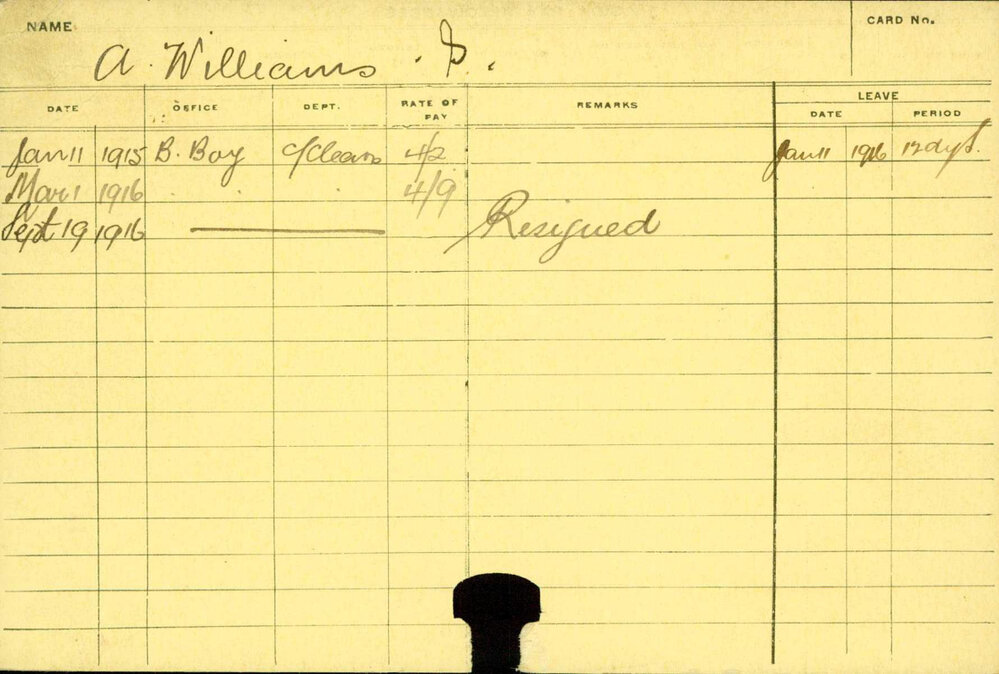 NAME CARD No.
A. Williams
DATE OFFICE DEPT. RATE OF PAY REMARKS LEAVE
DATE PERIOD
Jan 11 1915 B. Boy C/Cleans 4/2 Jan 11 1916 12 dys.
Mar 1 1916 " " 4/9
Sept 19 1916 Resigned